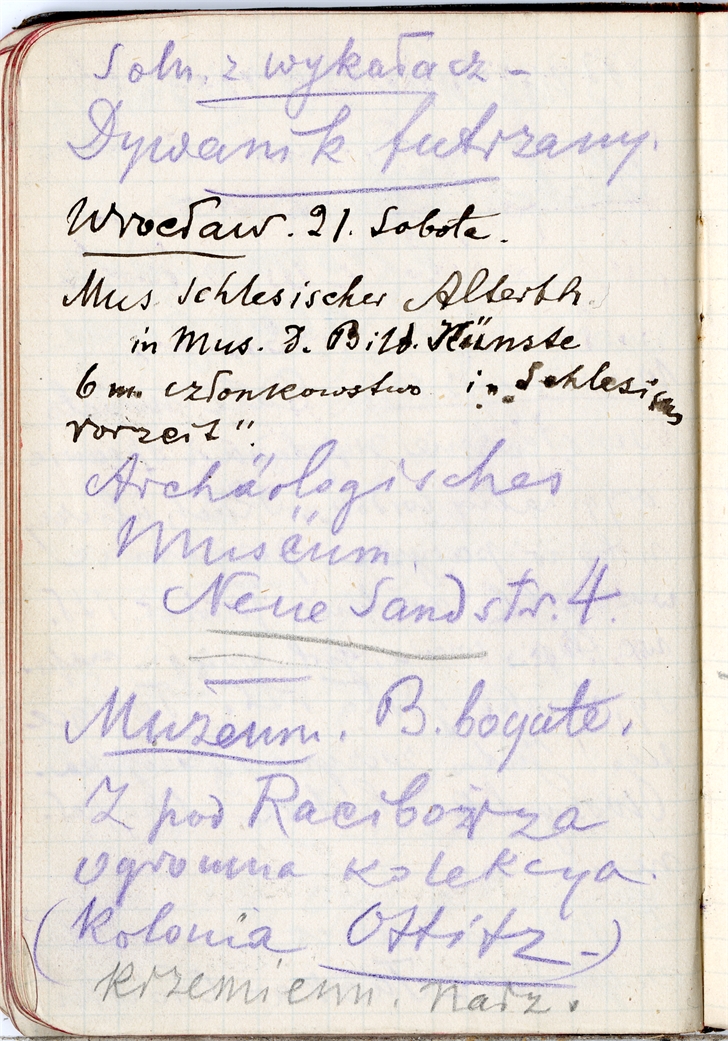 Soln. z wykałacz -
Dywanik futrzany.
Wrocław. 21. Sobota.
Mus Schlesischer Alterth.
in Mus. d. Bild. Künste
6 m. członkowstwo in „Schlesiens
Vorzeit".
Archäologisches
Museum
Neue Sandstr. 4.
Muzeum. B. bogate.
Z pod Raciborza
ogromna kolekcya.
(Kolonia Ottitz -)
Krzemienn. narz.